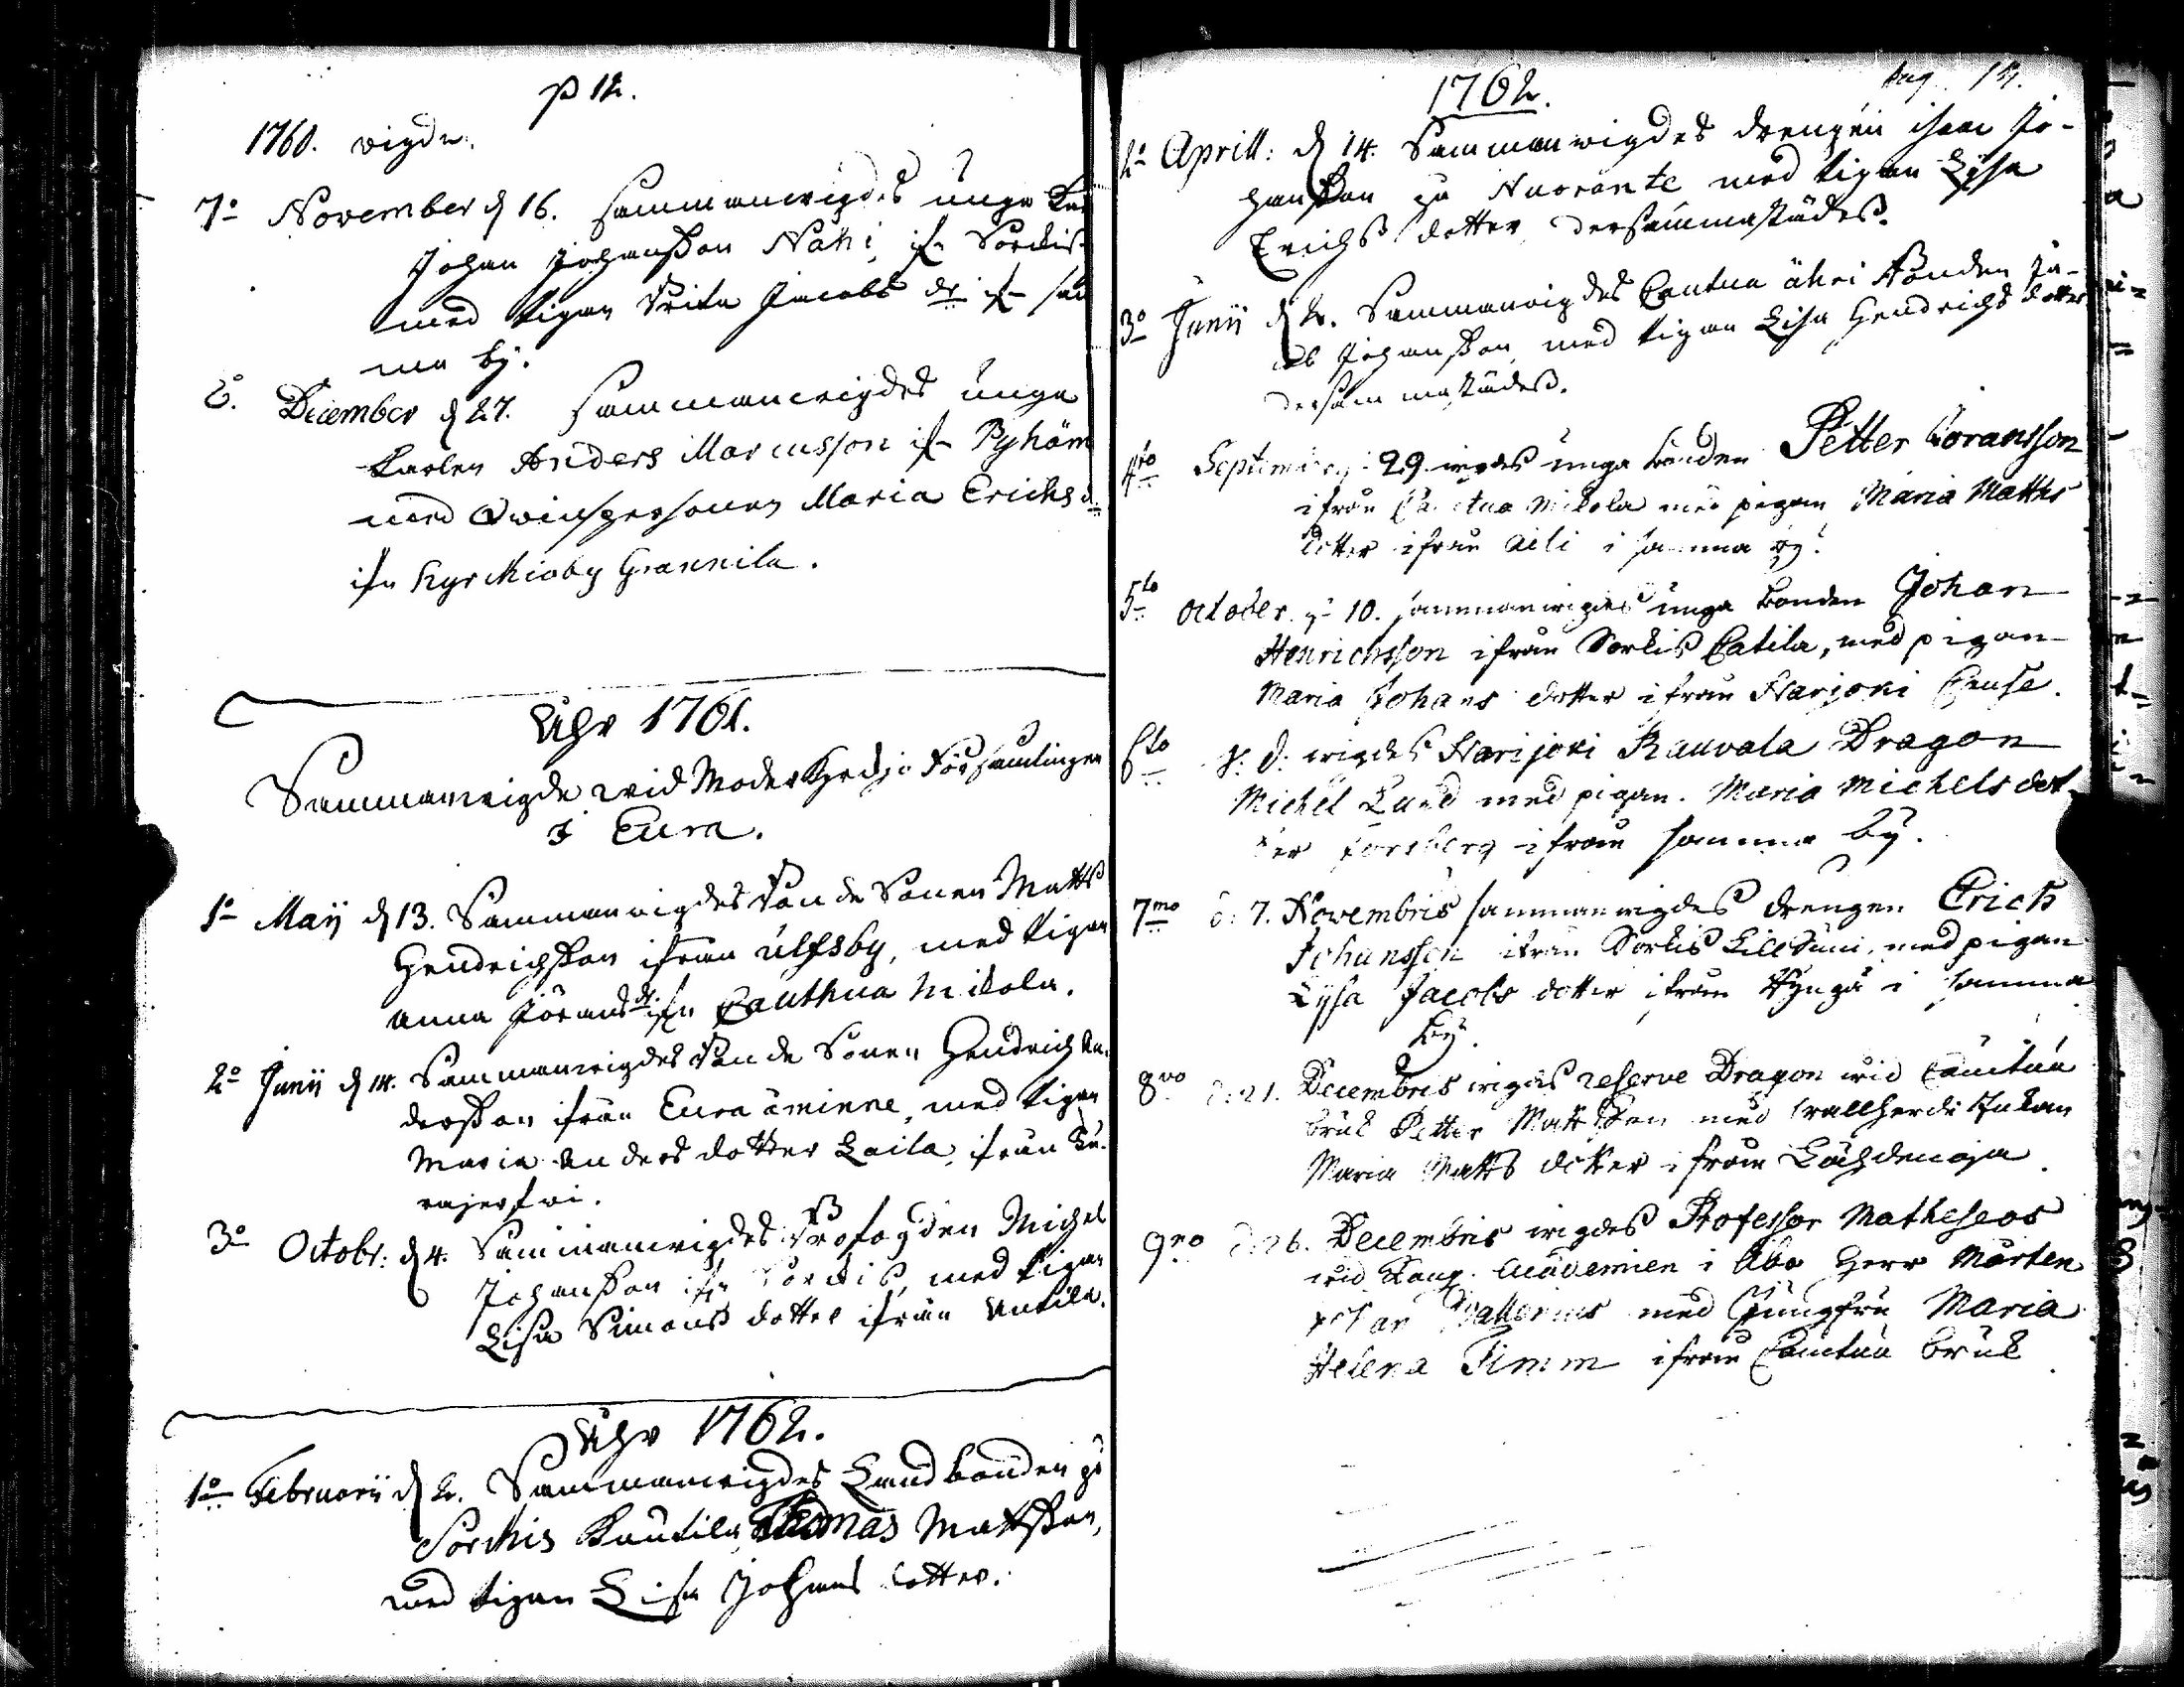 p 12.
1760. vigde.
7o November d 16. sammanvigdes unga
Johan Johansson Nahi if. Sorkis
med pigan Brita Jacobs dr if. sam
ma by.
8. December d 27. sammanvigdes unga
Karlen Anders Marcusson if. Pyhäm
med Qwinspersonen Maria Erichs d.
ifn Kyrckioby Grannila.
Åhr 1761.
Sammanvigde vid Moderkyrckjo Församlingen
i Eura.
1o Maij d 13. Sammanvigdes Bonde Sonen Matts
Hendrichsson ifrån Ulfsby, med pigan
Anna Jörans dr. ifn Cauthua Mickola.
2o Junii d 14. Sammanvigdes Bonde Sonen Hendrich An-
dersson ifrån Eura åminne, med pigan
Maria Anders dotter Laila, ifrån Ku-
rajerfwi.
3o Octobr: d 4. Sammanvigdes Profogden Michel
Johansson ifn Sorkis, med pigan
Lisa Simons dotter ifrån Antila.
Åhr 1762.
1o Februarii d 2. Sammanvigdes Landbonden på
Sorckis Kautila, Thomas Mattsson,
med pigan Lisa Johans dotter.
1762.
Pag. 13.
2o Aprill: d 14. Sammanvigdes drengen Isaac Jo-
hansson på Nuorante med pigan Lisa
Erichs dotter dersammastädes.
3o Junii d 2. Sammanvigdes Cautua Äkri Bonden Ja-
cob Johansson, med pigan Lisa Hendrichs dotter
dersammastädes.
4to September 29. wigdes unga bonden Petter Göransson
ifrån Cautua Mickola med pigan Maria Matts
dotter ifrån Äili i samma by.
5to October. d. 10. sammanwigdes unga bonden Johan
Henrichsson ifrån Sorkis Catila, med pigan
Maria Johans dotter ifrån Harjoki Cause.
6to d: d: wigdes Harijoki Rauvala Dragon
Michel Lund med pigan. Maria Michels dot-
ter Forsberg ifrån samma by.
7mo d: 7. Novembris sammanwigdes drengen Erich
Johansson ifrån Sorkis Lill Simi, med pigan
Lysa Jacobs dotter ifrån Hynga i samma
by.
8vo d: 21. Decembris wigdes reserve Dragon wid Cautua
bruk Petter Mattsson med Wallherde Enkan
Maria Matts dotter ifrån Lähdenoja
9no d: 26. Decembris wigdes Professor Matheseos
wid Kongl. Academien i Åbo Herr Mårten
Johan Wallenius med Jungfru Maria
Helena Timm ifrån Cautua bruk